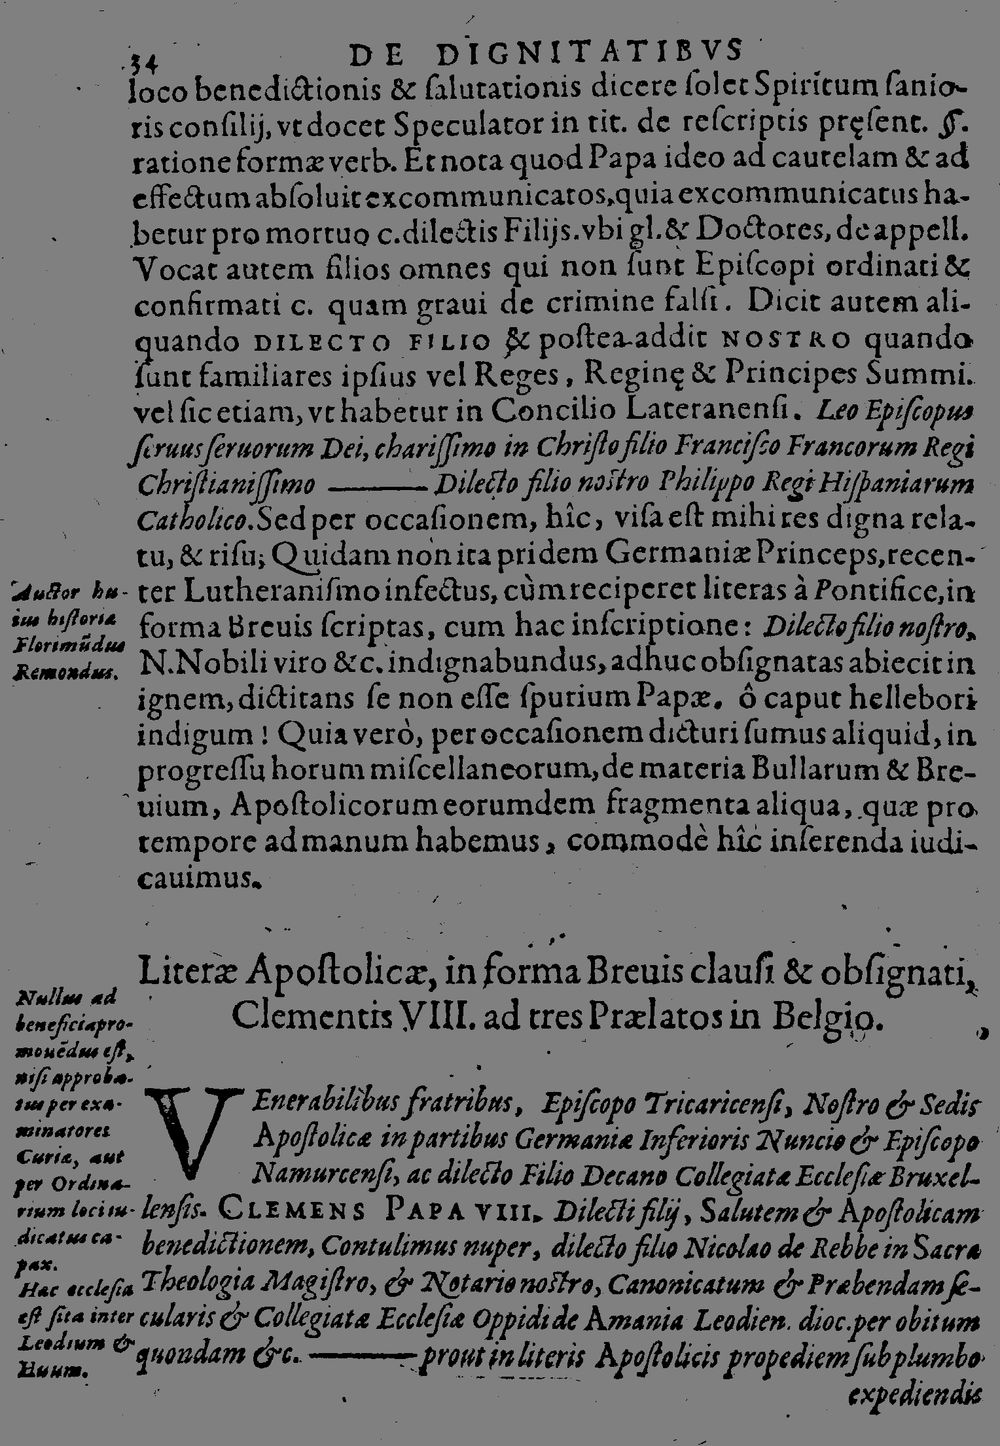 34
DE DIGNITATIBVS
loco benedictionis & ſalutationis dicere ſolet Spiritum ſanio-
ris conſilij, vt docet Speculator in tit. de reſcriptis pręſent. §.
ratione formæ verb. Et nota quod Papa ideo ad cautelam & ad
effectum abſoluit excommunicatos, quia excommunicatus ha-
betur pro mortuo c. dilectis Filijs. vbi gl. & Doctores, de appell.
Vocat autem filios omnes qui non ſunt Epiſcopi ordinati &
confirmati c. quam graui de crimine falſi. Dicit autem ali-
quando DILECTO FILIO & poſtea addit NOSTRO quando
ſunt familiares ipſius vel Reges, Reginę & Principes Summi.
vel ſic etiam, vt habetur in Concilio Lateranenſi. Leo Epiſcopus
ſeruus ſeruorum Dei, chariſſimo in Chriſto filio Franciſco Francorum Regi
Chriſtianiſſimo ——— Dilecto filio noſtro Philippo Regi Hiſpaniarum
Catholico. Sed per occaſionem, hîc, viſa eſt mihi res digna rela-
tu, & riſu; Quidam non ita pridem Germaniæ Princeps, recen-
ter Lutheraniſmo infectus, cùm reciperet literas à Pontifice, in
forma Breuis ſcriptas, cum hac inſcriptione: Dilecto filio noſtro,
N. Nobili viro &c. indignabundus, adhuc obſignatas abiecit in
ignem, dictitans ſe non eſſe ſpurium Papæ. ô caput hellebori
indigum! Quia verò, per occaſionem dicturi ſumus aliquid, in
progreſſu horum miſcellaneorum, de materia Bullarum & Bre-
uium, Apoſtolicorum eorumdem fragmenta aliqua, quæ pro
tempore ad manum habemus, commodè hîc inſerenda iudi-
cauimus.
Auctor hu-
ius hiſtoriæ
Florimũdus
Remondus.
Literæ Apoſtolicæ, in forma Breuis clauſi & obſignati,
Clementis VIII. ad tres Prælatos in Belgio.
VEnerabilibus fratribus, Epiſcopo Tricaricenſi, Noſtro & Sedis
Apoſtolicæ in partibus Germaniæ Inferioris Nuncio & Epiſcopo
Namurcenſi, ac dilecto Filio Decano Collegiatæ Eccleſiæ Bruxel-
lenſis. CLEMENS PAPA VIII. Dilecti filij, Salutem & Apoſtolicam
benedictionem, Contulimus nuper, dilecto filio Nicolao de Rebbe in Sacra
Theologia Magiſtro, & Notario noſtro, Canonicatum & Præbendam ſe-
cularis & Collegiatæ Eccleſiæ Oppidi de Amania Leodien. dioc. per obitum
quondam &c. ——— prout in literis Apoſtolicis propediem ſub plumbo
expediendis
Nullus ad
beneficia pro-
mouẽdus eſt,
niſi approba-
tus per exa-
minatores
Curiæ, aut
per Ordina-
rium loci iu-
dicatus ca-
pax.
Hæc eccleſia
eſt ſita inter
Leodium &
Huum.